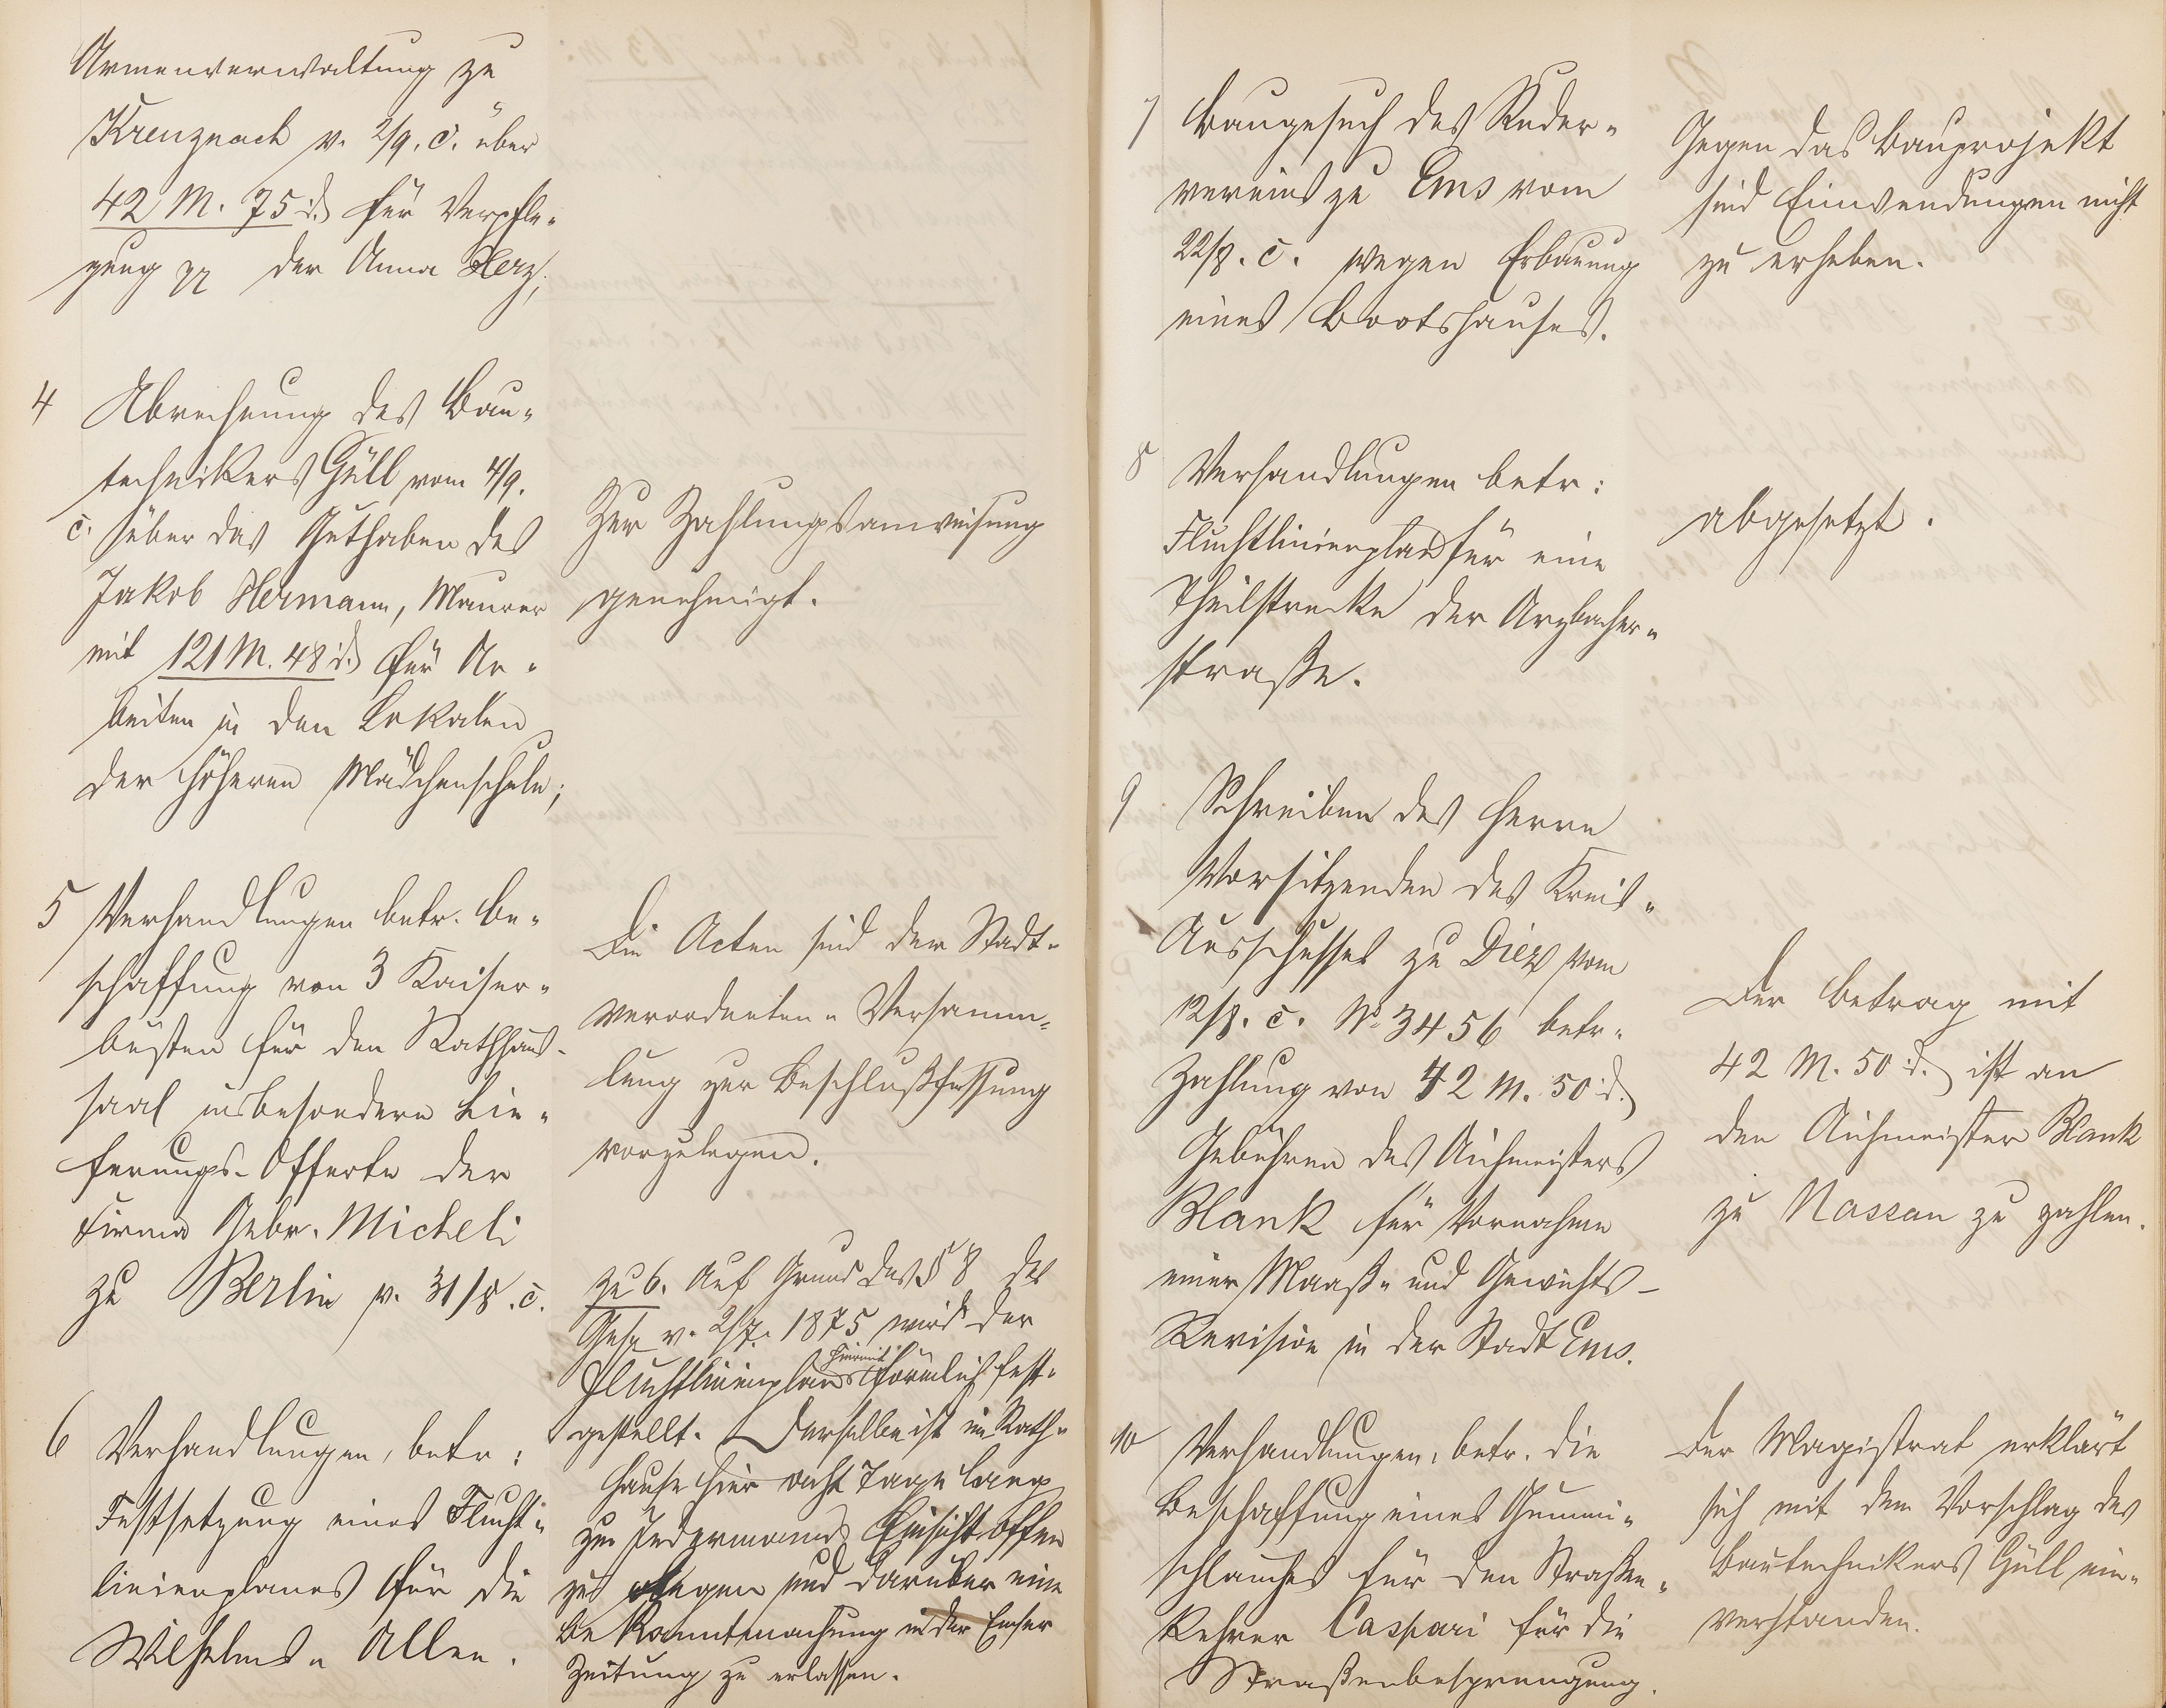 Armenverwaltung zu
Kreuznach v. 2/9. c. über
42 M. 75 d. für Verpfle-
gung pp der Anna Herz;
4 Abrechnung des Bau-
technikers Güll vom 4/9.
c. über das Guthaben des
Jakob Hermann, Maurer
mit 121 M. 48 d. für Ar-
beiten in den Lokalen
der höheren Mädchenschule;
Zur Zahlungsanweisung
genehmigt.
5 Verhandlungen betr. Be-
schaffung von 3 Kaiser-
büsten für den Rathhaus-
saal insbesondere Lie-
ferungs-Offerte der
Firma Gebr. Micheli
zu Berlin v. 31/8. c.
Die Acten sind der Stadt-
verordneten-Versamm-
lung zur Beschlußfassung
vorzulegen.
6 Verhandlungen, betr:
Festsetzung eines Flucht-
linienplanes für die
Wilhelms-Allee.
zu 6. Auf Grund des § 8 des
Ges. v. 2/7. 1875 wird der
Fluchtlinienplan hiermit förmlich fest-
gestellt. Derselbe ist im Rath-
hause hier acht Tage lang
zu Jedermanns Einsicht offen
zu legen und darüber eine
Bekanntmachung in der Emser
Zeitung zu erlassen.
7 Baugesuch des Ruder-
vereins zu Ems vom
22/8. c. wegen Erbauung
eines Bootshauses.
Gegen das Bauprojekt
sind Einwendungen nicht
zu erheben.
8 Verhandlungen betr:
Fluchtlinienplan für eine
Theilstrecke der Arzbacher-
straße.
abgesetzt.
9 Schreiben des Herrn
Vorsitzenden des Kreis-
Ausschusses zu Diez vom
12/8. c. No 3456 betr.
Zahlung von 42 M. 50 d.
Gebühren des Aichmeisters
Blank für Vornahme
einer Maaß- und Gewichts-
Revision in der Stadt Ems.
Der Betrag mit
42 M. 50 d. ist an
den Aichmeister Blank
zu Nassau zu zahlen.
10 Verhandlungen, betr. die
Beschaffung eines Gummi-
schlauches für den Straßen-
kehrer Caspari für die
Straßenbesprengung.
Der Magistrat erklärt
sich mit dem Vorschlag des
Bautechnikers Güll ein-
verstanden.